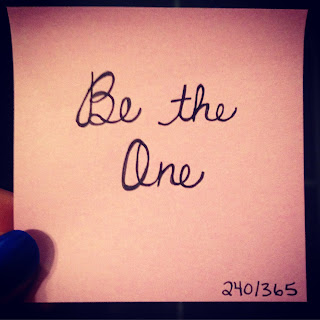 Be the
One
240/365